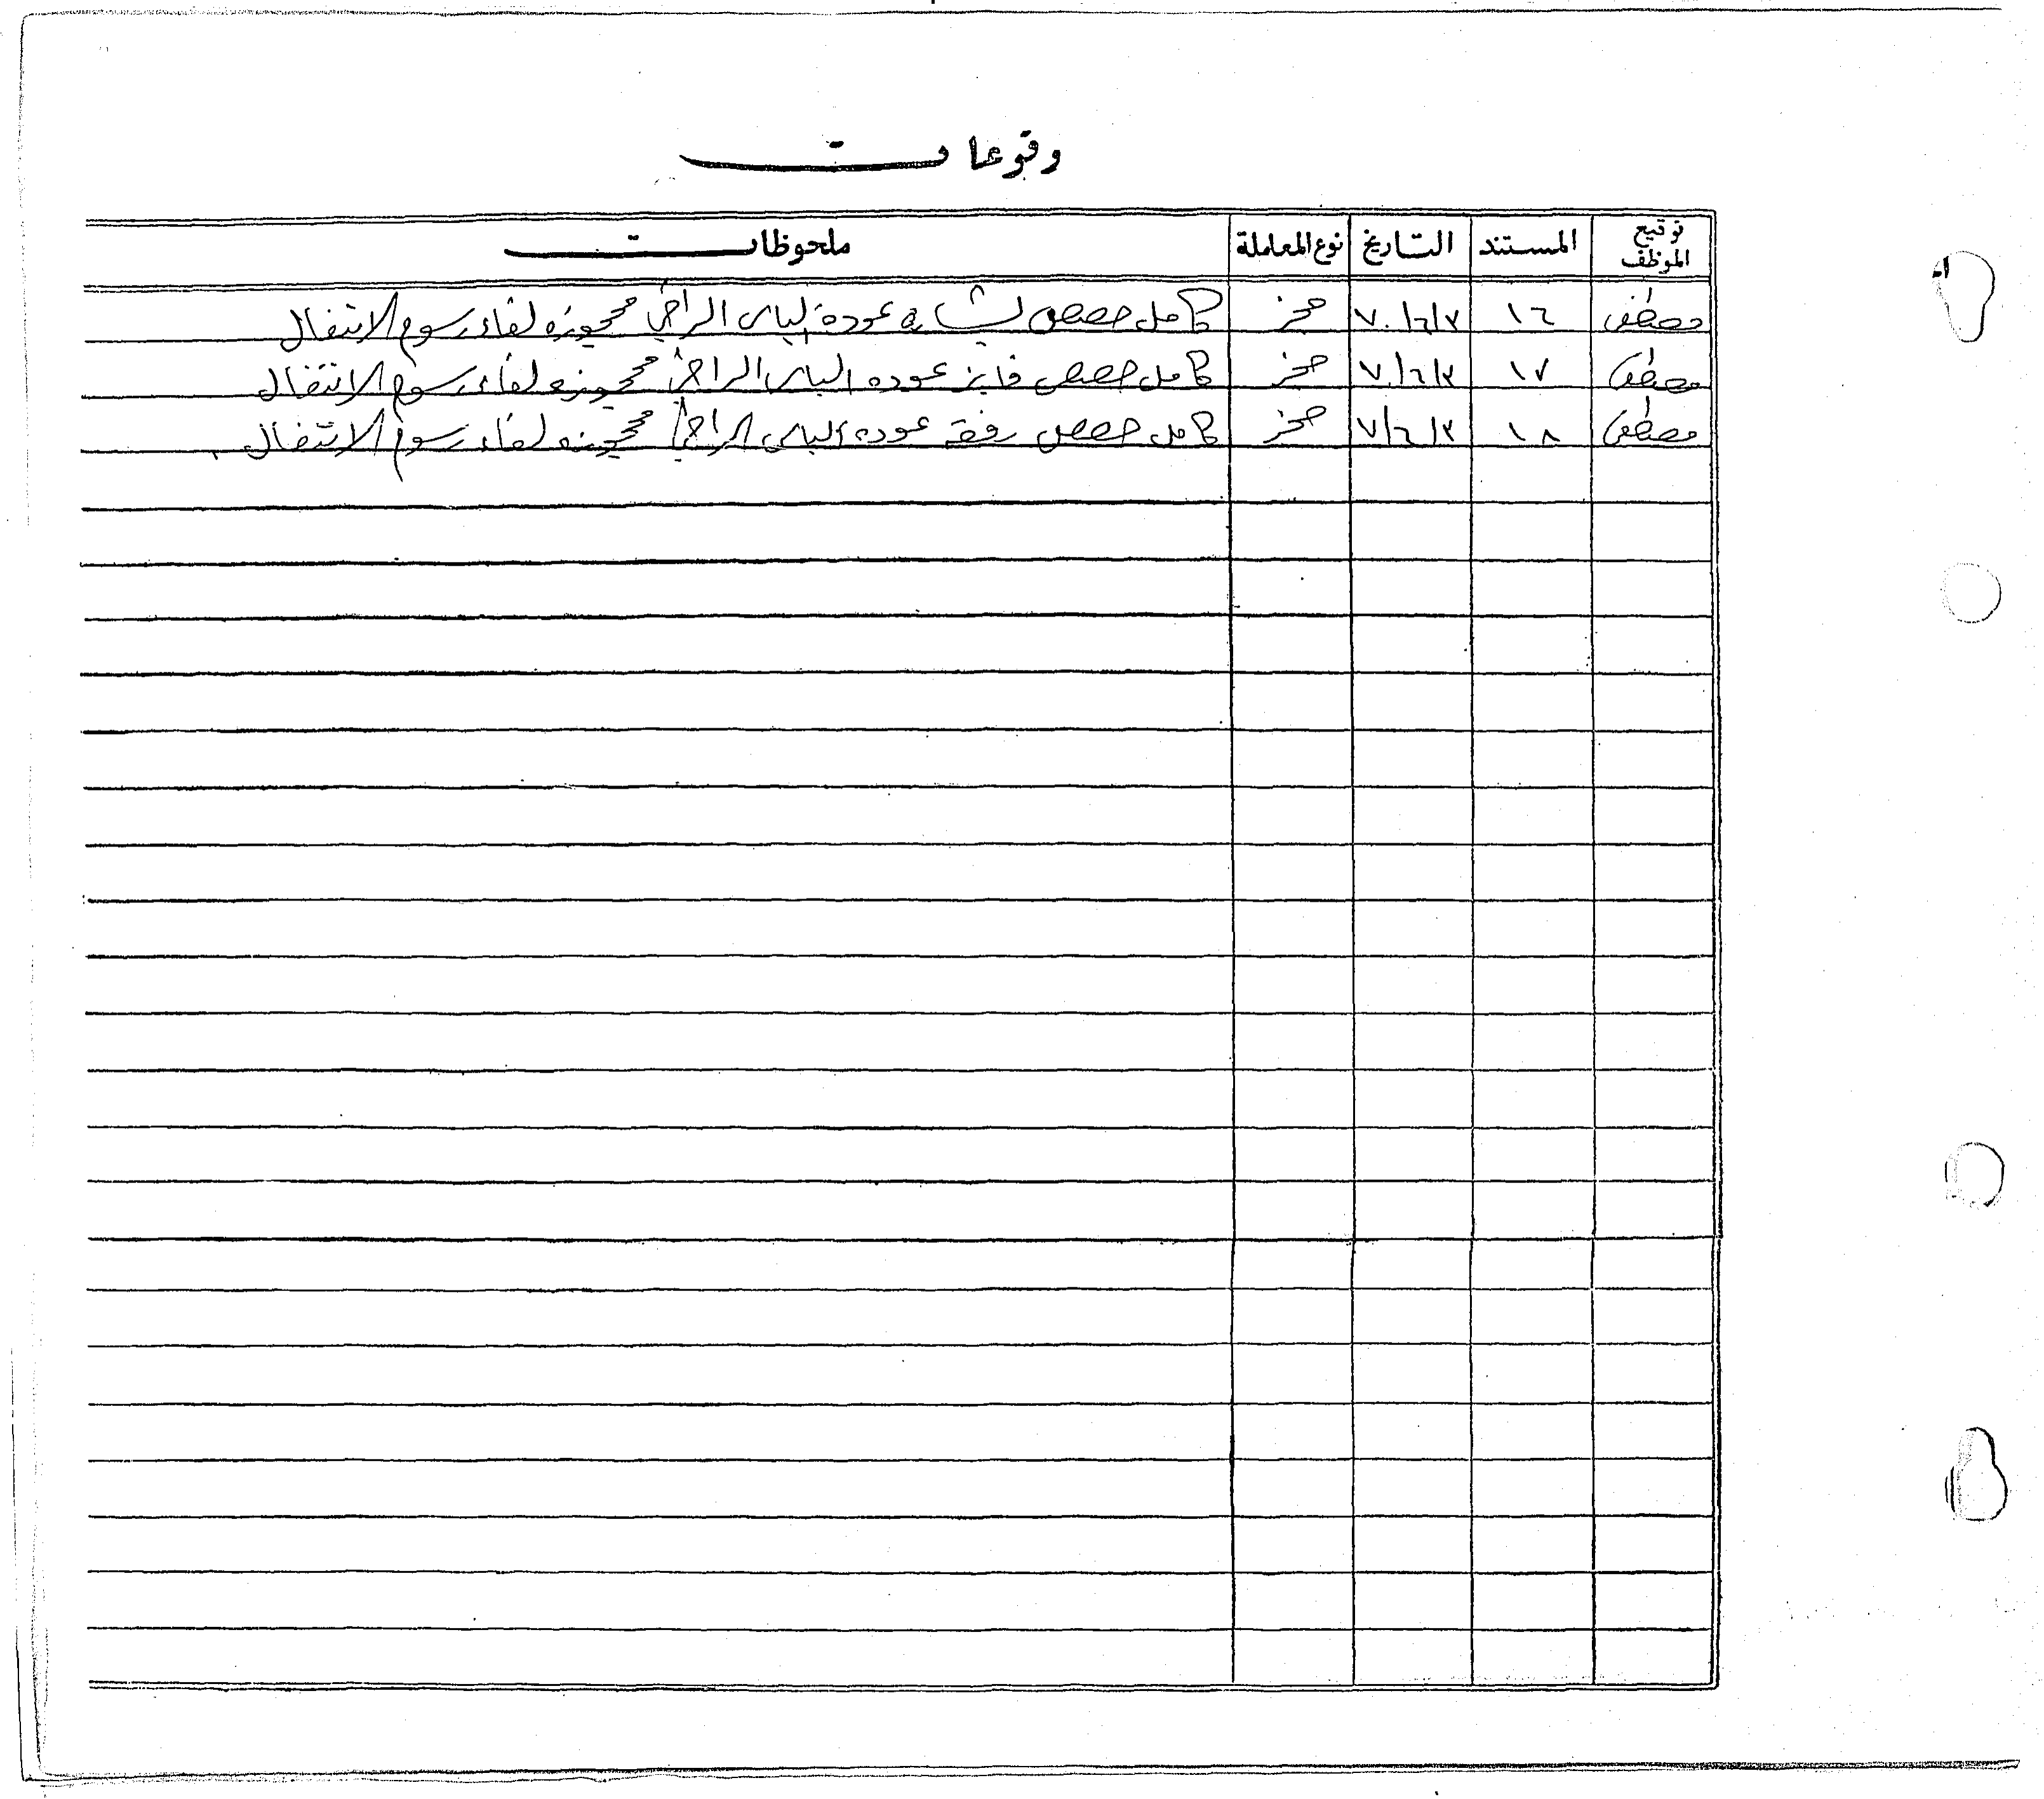 وقوعات
توقيع الموظف المستند التاريخ نوع المعاملة ملحوظات
مصطفى ١٦ حجز كامل حصص عودة الياس الراجي محجوزه لقاء رسوم الانتقال
مصطفى ١٧ حجز كامل حصص فايز عوده الياس الراجي محجوزه لقاء رسوم الانتقال
مصطفى ١٨ حجز كامل حصص رفقه عوده الياس الراجي محجوزه لقاء رسوم الانتقال